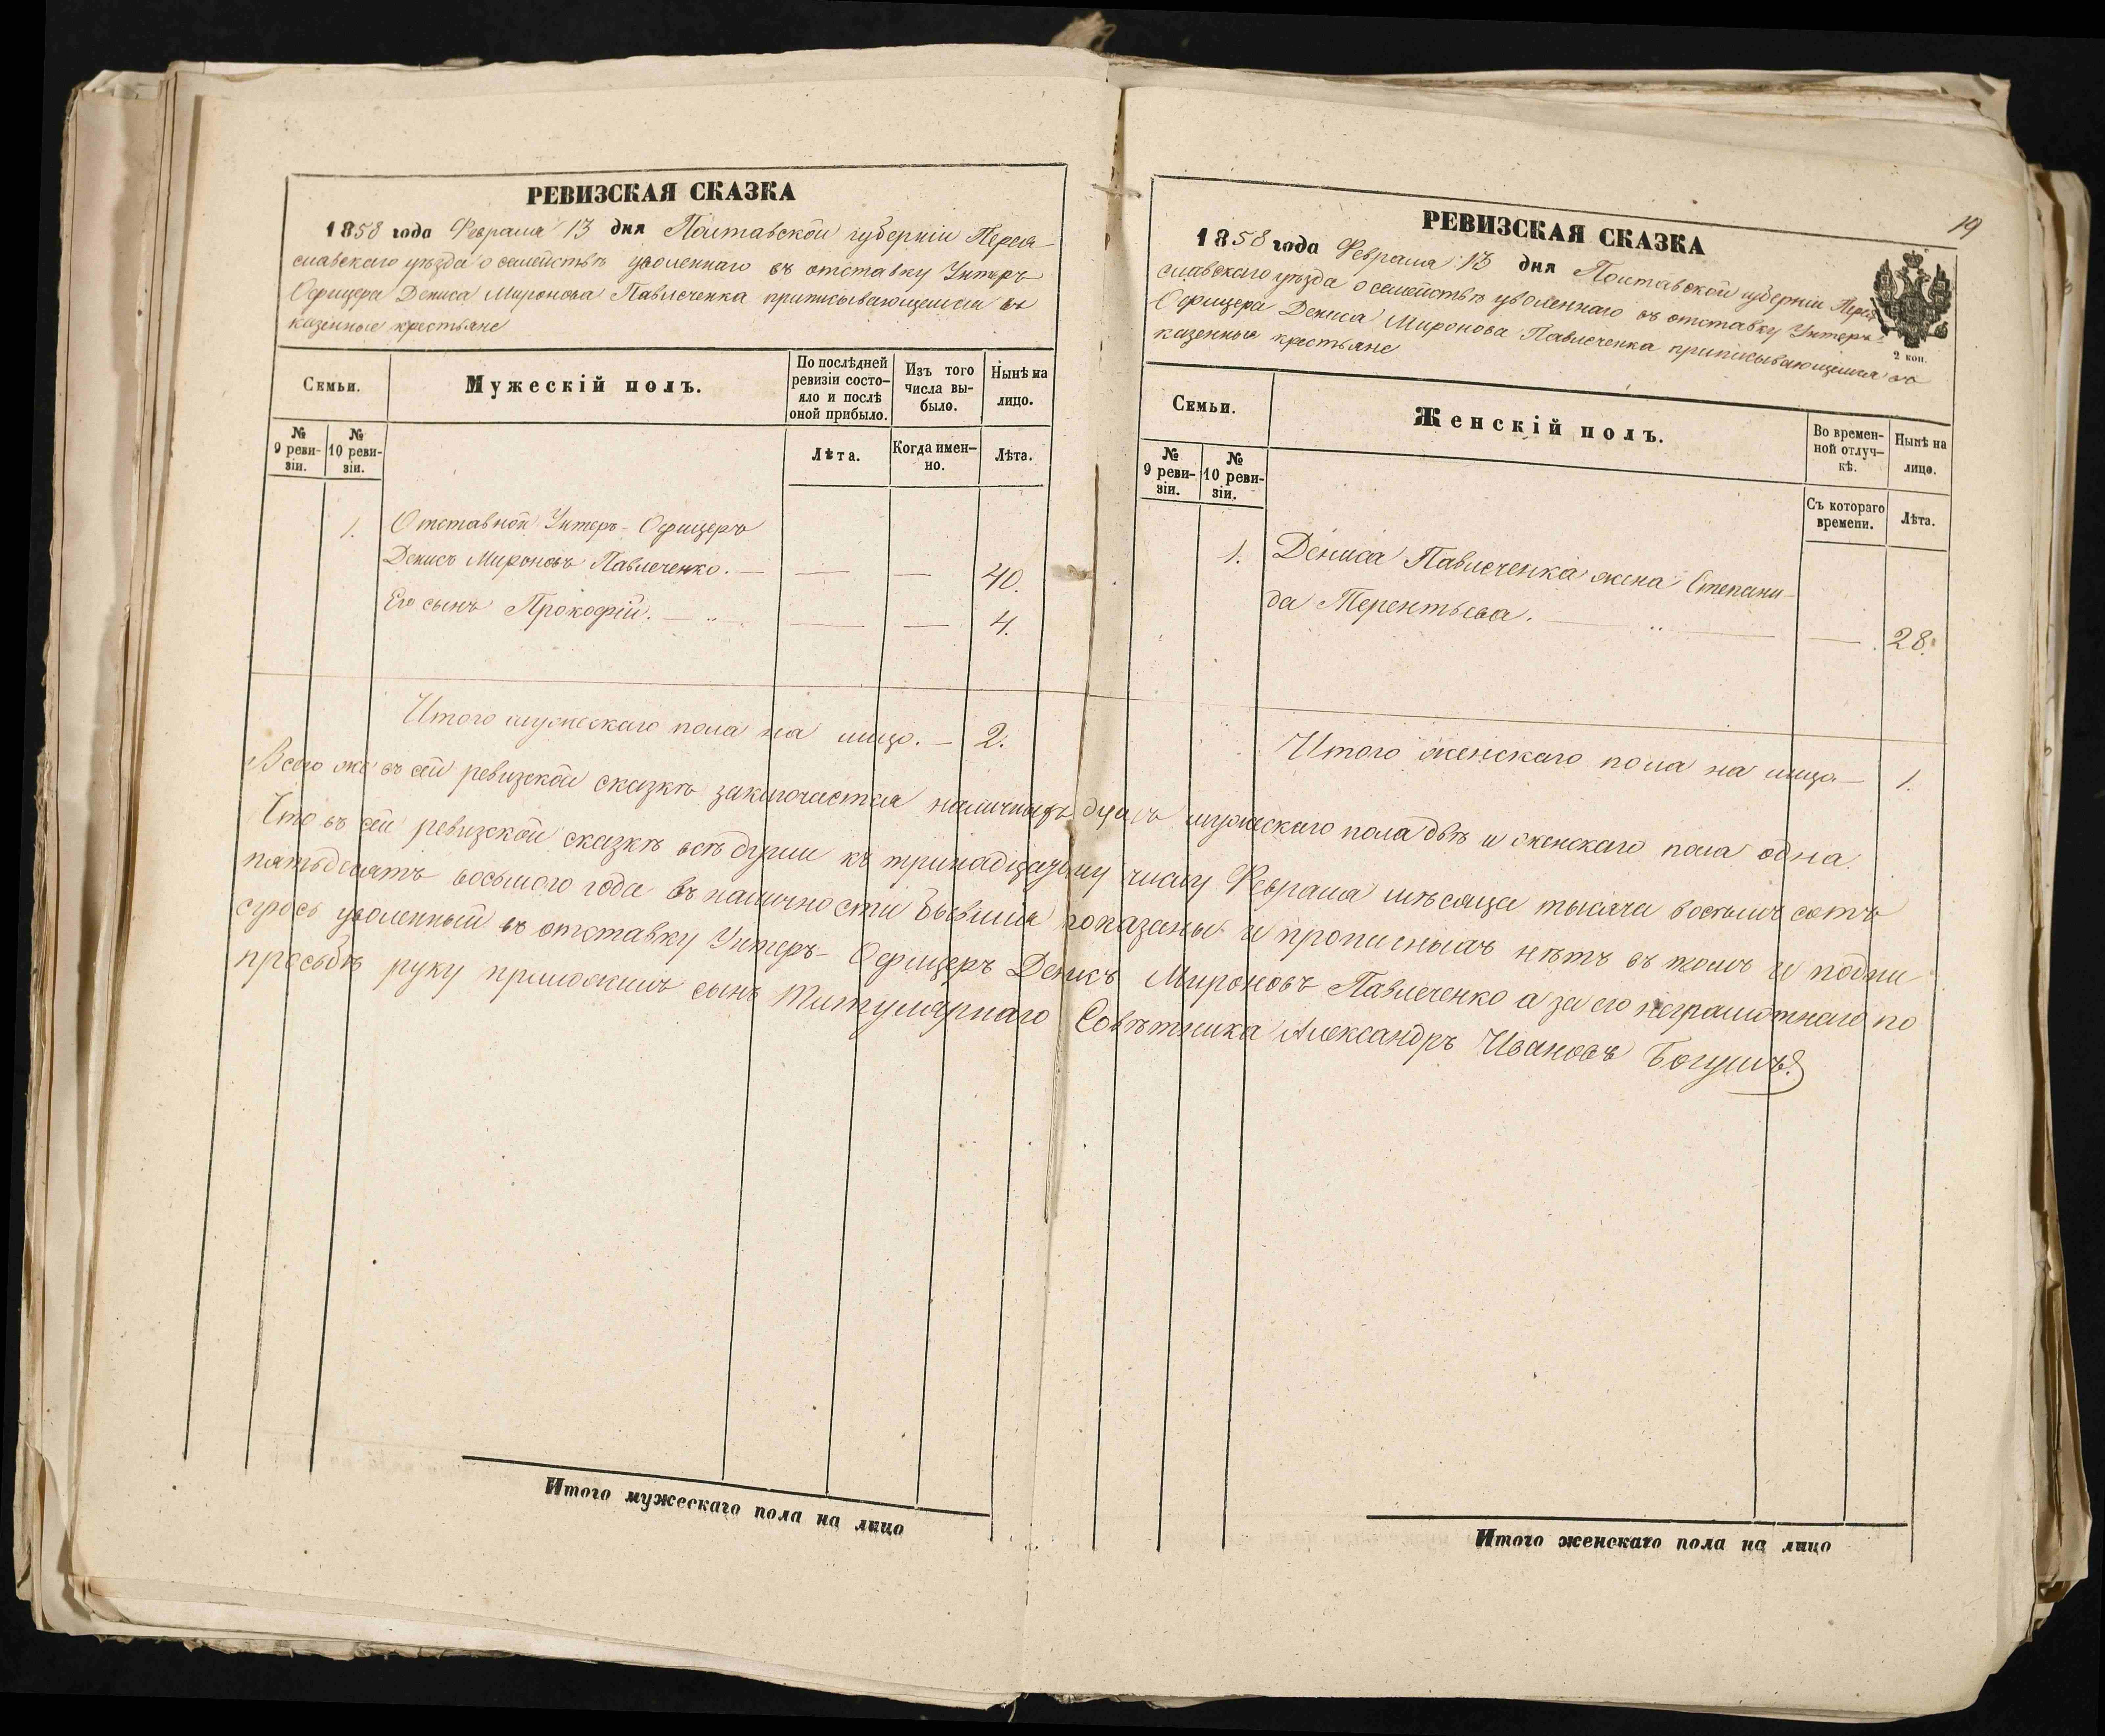 РЕВИЗСКАЯ СКАЗКА
1858 года Февраля 13 дня Полтавской губерніи Перея-
славскаго уѣзда о семействѣ уволеннаго въ отставку Унтеръ
Офицера Дениса Миронова Павлеченка приписывающемся въ
казенные крестьяне
Семьи.
Мужескій полъ.
По послѣдней
ревизіи состо-
яло и послѣ
оной прибыло.
Изъ того
числа вы-
было.
Нынѣ на
лицо.
№
9 реви-
зіи.
№
10 реви-
зіи.
Лѣта.
Когда имен-
но.
Лѣта.
1. Отставной Унтеръ-Офицеръ
Денисъ Мироновъ Павлеченко. — — — 40.
Его сынъ Прокофій. — „ — — — 4.
Итого мужескаго пола на лицо. — 2.
19
РЕВИЗСКАЯ СКАЗКА
1858 года Февраля 13 дня Полтавской губерніи Перея-
славскаго уѣзда о семействѣ уволеннаго въ отставку Унтеръ-
Офицера Дениса Миронова Павлеченка приписывающемся въ
казенные крестьяне
2 коп.
Семьи.
Женскій полъ.
Во времен-
ной отлуч-
кѣ.
Нынѣ на
лицо.
№
9 реви-
зіи.
№
10 реви-
зіи.
Съ котораго
времени.
Лѣта.
1. Дениса Павлеченка жена Степани-
да Терентьева. — „ — — 28.
Итого женскаго пола на лицо — 1.
Всего же въ сей ревизской сказкѣ заключается наличныхъ душъ мужескаго пола двѣ и женскаго пола одна.
Что въ сей ревизской сказкѣ всѣ души къ тринадцатому числу Февраля мѣсяца тысяча восемь сотъ
пятьдесятъ восьмого года въ наличности бывшія показаны и прописныхъ нѣтъ въ томъ и подпи
суюсь уволенный въ отставку Унтеръ-Офицеръ Денисъ Мироновъ Павлеченко а за его неграмотнаго по
просьбѣ руку приложилъ сынъ Титулярнаго Совѣтника Александръ Ивановъ Богушъ.
Итого мужескаго пола на лицо
Итого женскаго пола на лицо